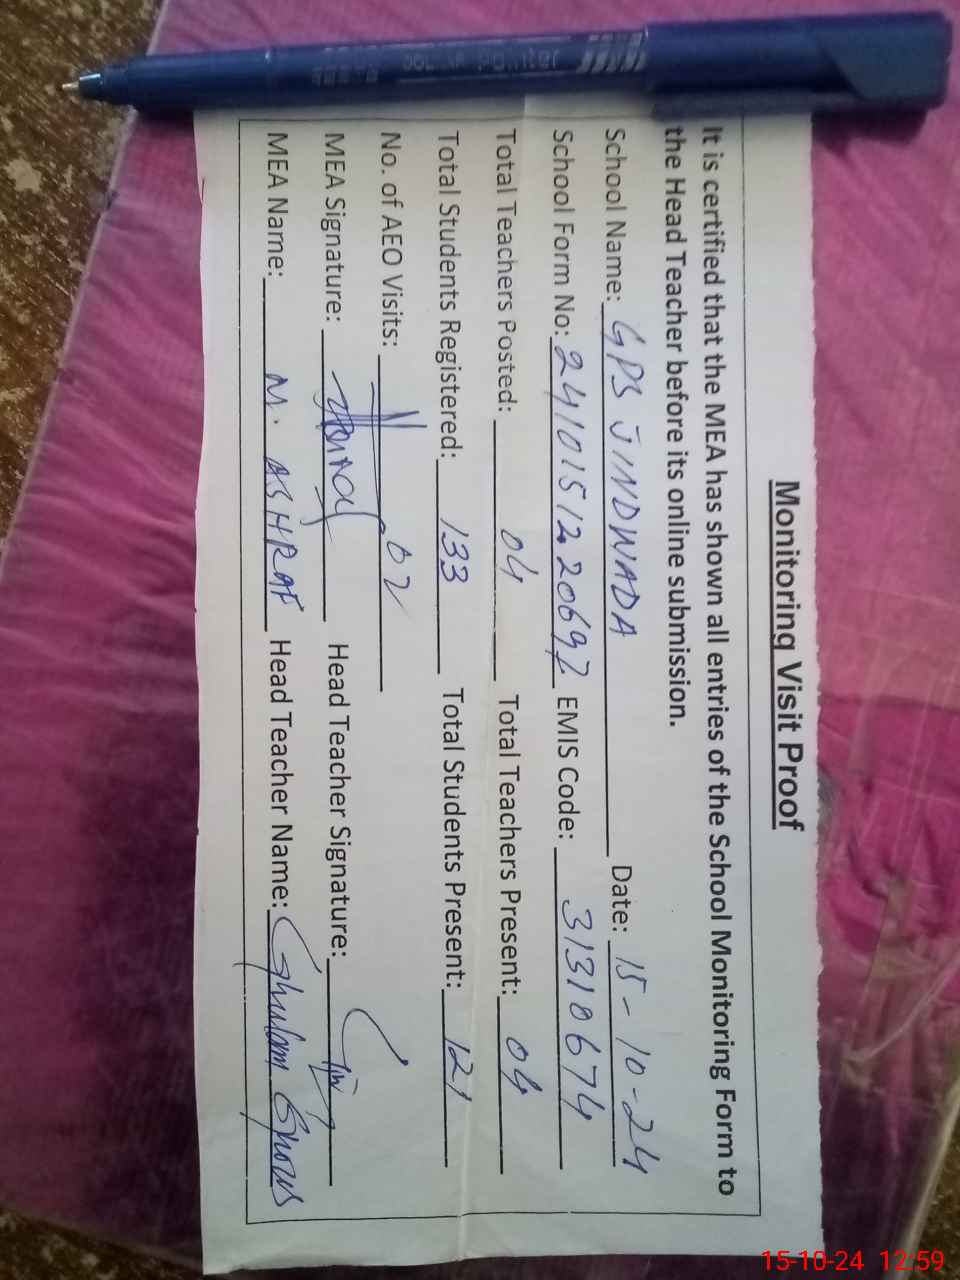 Monitoring Visit Proof
It is certified that the MEA has shown all entries of the School Monitoring Form to
the Head Teacher before its online submission.
School Name: GPS JINDWADA Date: 15-10-24
School Form No: 2410151220697 EMIS Code: 31310674
Total Teachers Posted: 04 Total Teachers Present: 04
Total Students Registered: 133 Total Students Present: 121
No. of AEO Visits: 02
MEA Signature: Head Teacher Signature:
MEA Name: M. ASHRAF Head Teacher Name: Ghulam Ghous
15-10-24 12:59